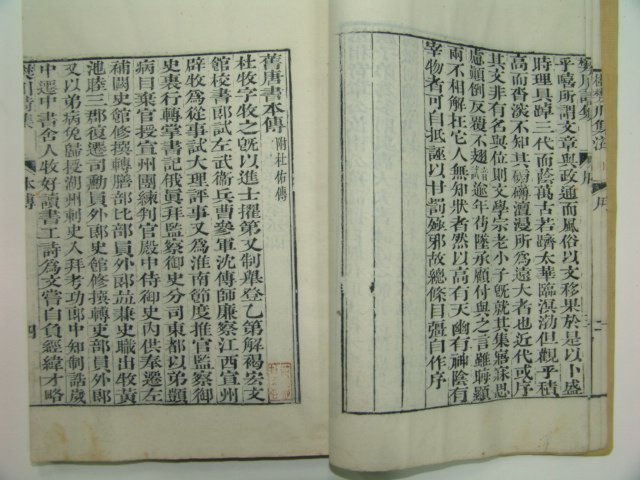 樊川詩集　序
乎嘻所謂文章與政通而風俗以文移果於是以卜盛
時理具踔三代而蔭萬古若躋太華臨溟渤但觀乎積
高而沓深不知其磅礴澶漫所爲遠大者也近代或序
其文非有名與位則文學宗老小子旣就其集寤寐思
慮顚倒反覆不翅逾年仿墜承顧付與之言雖晦顯
兩不相解抂它人無知狀者然以高有天幽有神陰有
宰物者可自抵誣以甘罰殛邪故總條目彊自作序
舊唐書本傳　附杜佑傳
杜牧字牧之旣以進士擢第又制舉登乙第解褐宏文
館校書郎試左武衞兵曹參軍沈傳師廉察江西宣州
辟牧爲從事試大理評事又爲淮南節度推官監察御
史裏行轉掌書記俄眞拜監察御史分司東都以弟顗
病目棄官授宣州團練判官殿中侍御史內供奉遷左
補闕史館修撰轉膳部比部員外郎竝兼史職出牧黃
池睦三郡復遷司勳員外郎史館修撰轉吏部員外郎
又以弟病免歸授湖州刺史入拜考功郎中知制誥歲
中遷中書舍人牧好讀書工詩爲文嘗自負經緯才略
樊川詩集　本傳　四